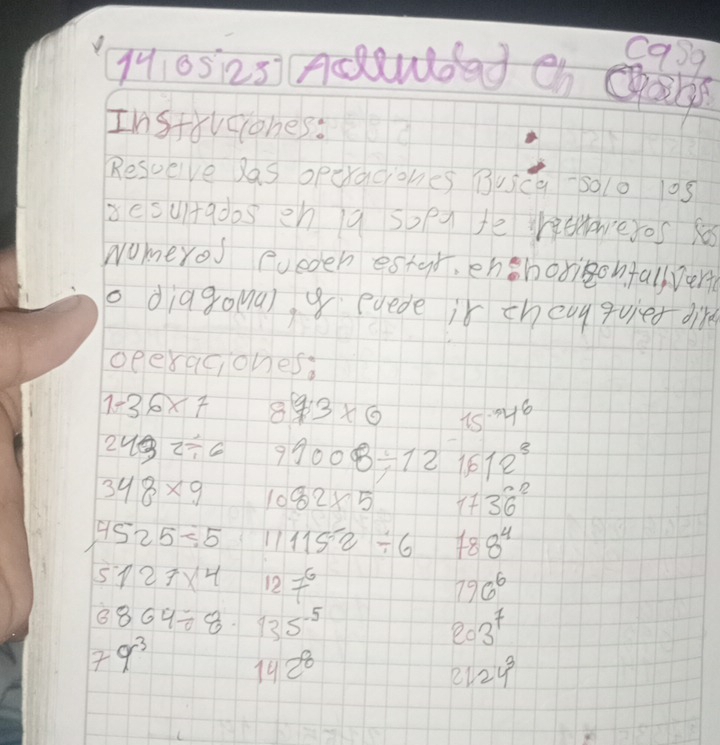 14 05 25 Actividad en casa
Instruciones:
Resuelve las operaciones Busca solo los
resultados en la sopa de los
Numeros pueden estar. en: horizontal,
o diagonal, y puede ir en cualquier
operaciones:
1-36x7 8 93x6 15 4⁶
2 492÷6 9 1008÷12 16 12³
3 48x9 10 82x5 17 36²
4 525÷5 11 1152÷6 18 8⁴
5 127x4 12 7⁶ 19 6⁶
6 864÷8 13 5⁵ 20 3⁷
7 9³ 14 2⁸ 21 24³